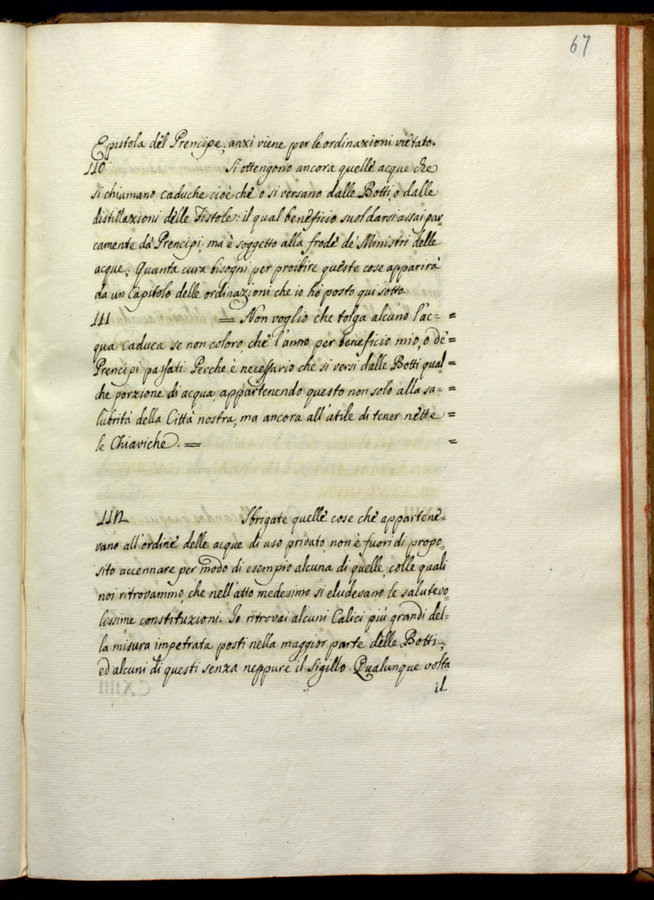 67
Epistola del Prencipe, anzi viene per le ordinazioni vietato.
110 Si ottengono ancora quelle acque che
si chiamano caduche cioè che o si versano dalle Botti, o dalle
distillazioni delle Fistole: il qual beneficio suol darsi assai par_
camente da Prencipi, ma è soggetto alla frode de Ministri delle
acque. Quanta cura bisogni per proibire queste cose apparirà
da un Capitolo delle ordinazioni che io ho posto qui sotto.
111 = Non voglio che tolga alcuno l'ac- =
qua caduca se non coloro che l'anno per beneficio mio, o de' =
Prencipi passati. Perche è necessario che si versi dalle Botti qual =
che porzione di acqua, appartenendo questo non solo alla sa- =
lubrità della Città nostra, ma ancora all'utile di tener nette =
le Chiaviche. = =
112 Sbrigate quelle cose che appartene-
vano all'ordine delle acque di uso privato, non è fuori di propo_
sito accennare per modo di esempio alcuna di quelle, colle quali
noi ritrovammo che nell'atto medesimo si eludevano le salutevo_
lissime constituzioni. Io ritrovai alcuni Calici più grandi del-
la misura impetrata posti nella maggior parte delle Botti,
ed alcuni di questi senza neppure il Sigillo. Qualunque volta
il